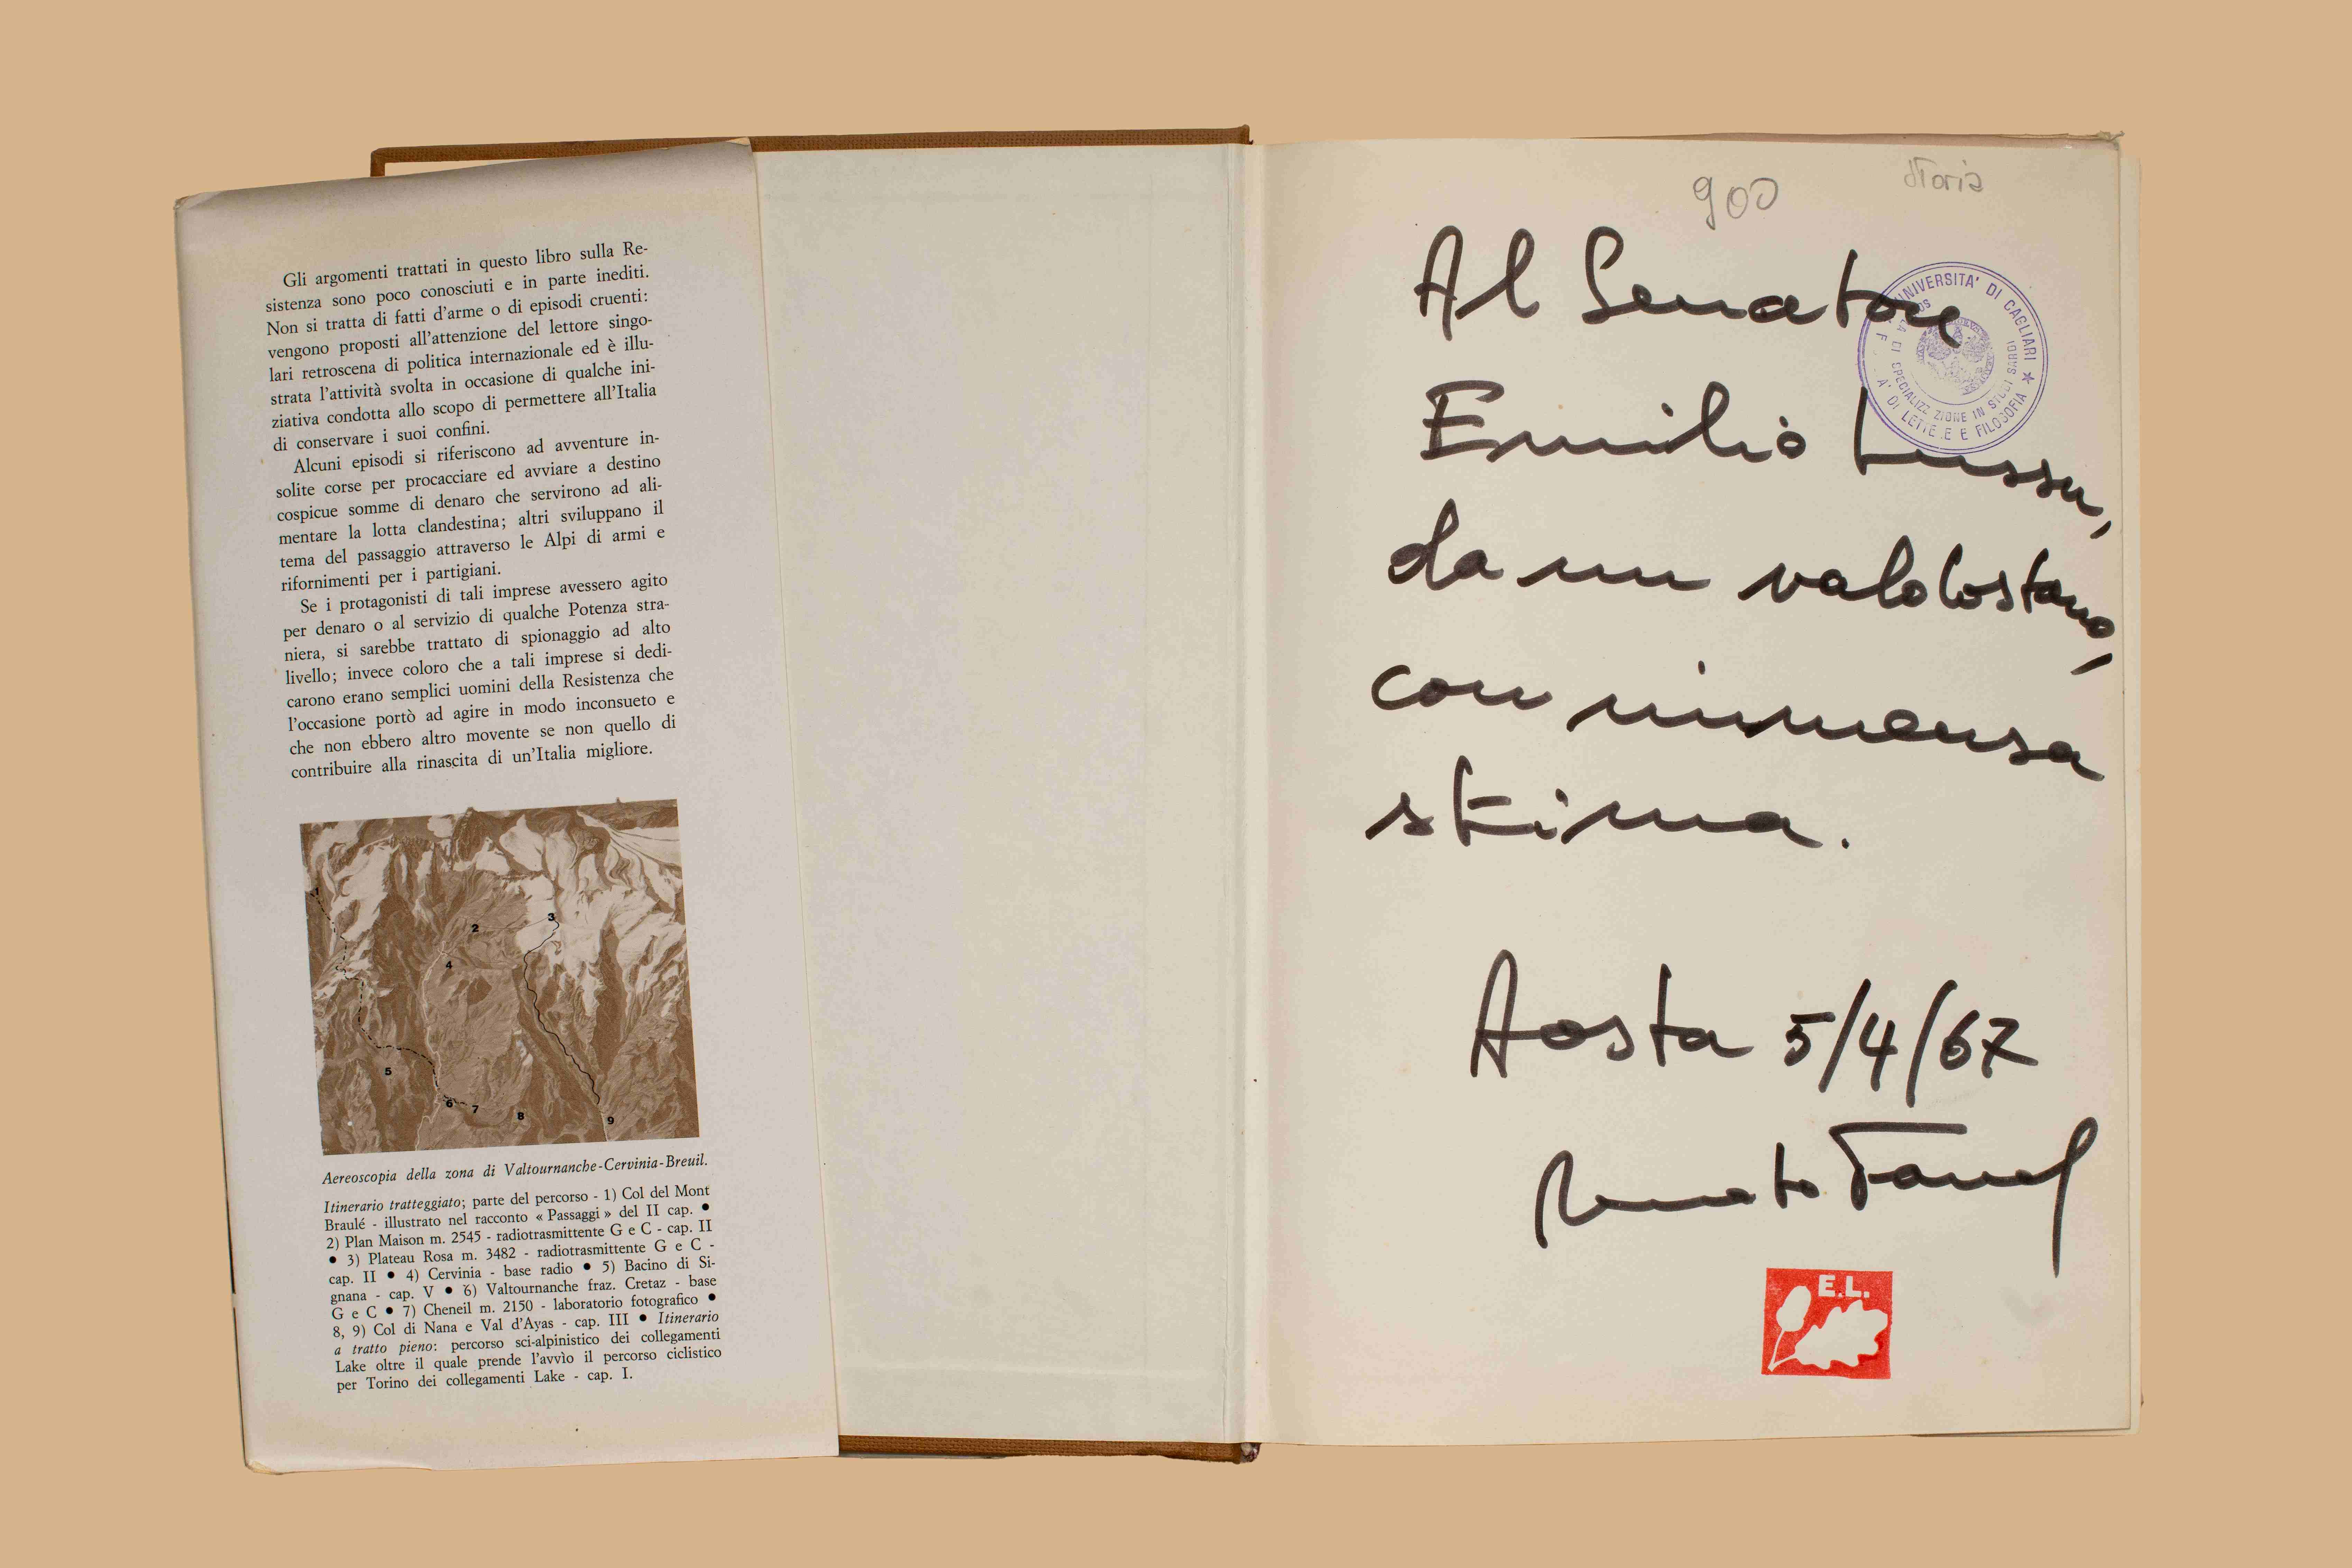 Gli argomenti trattati in questo libro sulla Re-
sistenza sono poco conosciuti e in parte inediti.
Non si tratta di fatti d'arme o di episodi cruenti:
vengono proposti all'attenzione del lettore singo-
lari retroscena di politica internazionale ed è illu-
strata l'attività svolta in occasione di qualche ini-
ziativa condotta allo scopo di permettere all'Italia
di conservare i suoi confini.
Alcuni episodi si riferiscono ad avventure in-
solite corse per procacciare ed avviare a destino
cospicue somme di denaro che servirono ad ali-
mentare la lotta clandestina; altri sviluppano il
tema del passaggio attraverso le Alpi di armi e
rifornimenti per i partigiani.
Se i protagonisti di tali imprese avessero agito
per denaro o al servizio di qualche Potenza stra-
niera, si sarebbe trattato di spionaggio ad alto
livello; invece coloro che a tali imprese si dedi-
carono erano semplici uomini della Resistenza che
l'occasione portò ad agire in modo inconsueto e
che non ebbero altro movente se non quello di
contribuire alla rinascita di un'Italia migliore.
1
2
3
4
5
6
7
8
9
Aereoscopia della zona di Valtournanche-Cervinia-Breuil.
Itinerario tratteggiato; parte del percorso - 1) Col del Mont
Braulé - illustrato nel racconto « Passaggi » del II cap. •
2) Plan Maison m. 2545 - radiotrasmittente G e C - cap. II
• 3) Plateau Rosa m. 3482 - radiotrasmittente G e C -
cap. II • 4) Cervinia - base radio • 5) Bacino di Si-
gnana - cap. V • 6) Valtournanche fraz. Cretaz - base
G e C • 7) Cheneil m. 2150 - laboratorio fotografico •
8, 9) Col di Nana e Val d'Ayas - cap. III • Itinerario
a tratto pieno: percorso sci-alpinistico dei collegamenti
Lake oltre il quale prende l'avvìo il percorso ciclistico
per Torino dei collegamenti Lake - cap. I.
900
storia
Al Senatore
Emilio Lussu,
da un valdostano,
con immensa
stima.
UNIVERSITA' DI CAGLIARI
DI SPECIALIZZ ZIONE IN STUDI SARDI
A' DI LETTE E E FILOSOFIA
Aosta 5/4/67
Renato
E.L.